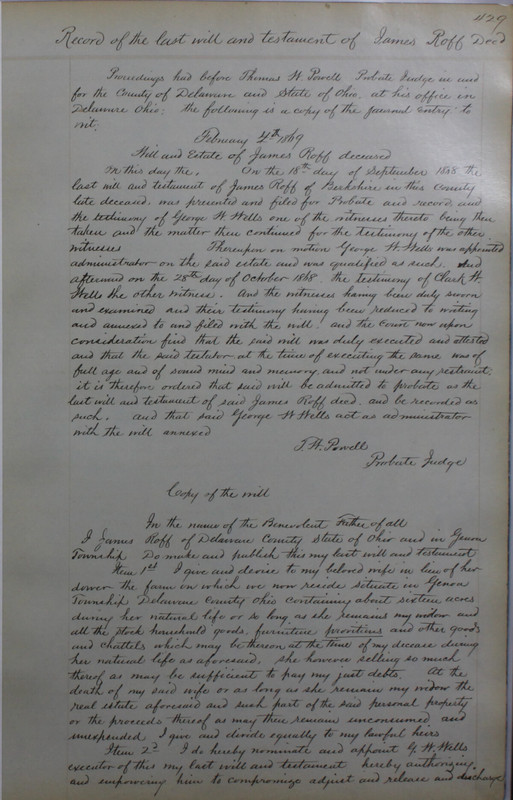 429
Record of the last will and testament of James Roff Decd
Proceedings had before Thomas W. Powell Probate Judge in and
for the County of Delaware and State of Ohio. at his office in
Delaware Ohio: the following is a copy of the journal entry: to
wit:
February 4th 1869
Will and Estate of James Roff deceased
In this day the. On the 18th day of September 1868 the
last will and testament of James Roff of Berkshire in this county
late deceased. was presented and filed for Probate and record, and
the testimony of George W Wells one of the witnesses thereto being then
taken and the matter then continued for the testimony of the other
witnesses Thereupon on motion George W. Wells was appointed
administrator on the said estate and was qualified as such. And
afterward on the 28th day of October 1868. the testimony of Clark W.
Wells the other witness. And the witnesses having been duly sworn
and examined and their testimony having been reduced to writing
and annexed to and filed with the will: and the Court now upon
consideration find that the said will was duly executed and attested
and that the said testator at the time of executing the same was of
full age and of sound mind and memory, and not under any restraint;
it is therefore ordered that said will be admitted to probate as the
last will and testament of said James Roff decd. and be recorded as
such. And that said George W Wells act as administrator
with the will annexed
T. W. Powell
Probate Judge
Copy of the will
In the name of the Benevolent Father of all
I James Roff of Delaware County State of Ohio and in Genoa
Township Do make and publish this my last will and testament
Item 1st I give and devise to my beloved wife in lieu of her
dower the farm on which we now reside situate in Genoa
Township Delaware County Ohio containing about sixteen acres
during her natural life or so long as she remains my widow and
all the stock household goods, furniture provitions and other goods
and chattels which may be thereon at the time of my decease during
her natural life as aforesaid. she however selling so much
therof as may be sufficient to pay my just debts. At the
death of my said wife or as long as she remain my widow the
real estate aforesaid and such part of the said personal property
or the proceeds thereof as may then remain unconsumed and
unexpended I give and divide equally to my lawful heirs
Item 2d I do hereby nominate and appoint G. W. Wells
executor of this my last will and testament hereby authorising
and empowering him to compromize adjust and release and discharge